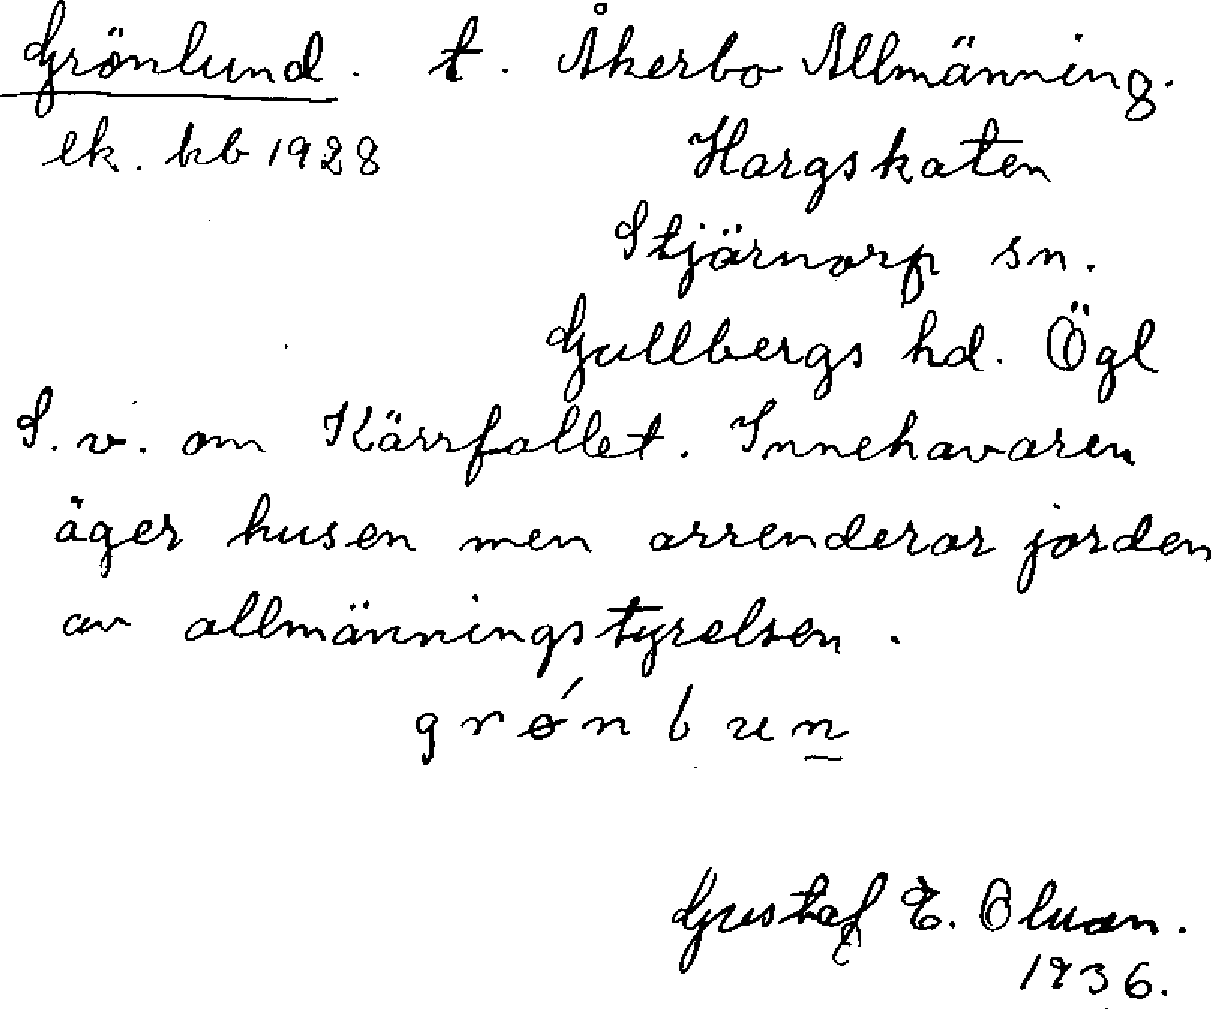 Grönlund. t. Åkerbo Allmänning.
ek. kb 1928 Hargskaten
Stjärnorp sn.
Gullbergs hd. Ögl
S. v. om Kärrfallet. Innehavaren
äger husen men arrenderar jorden
av allmänningstyrelsen.
grǿnbun
Gustaf E.
1936.